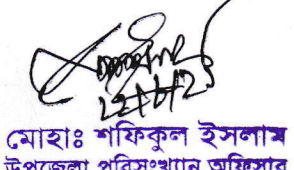 মোহাঃ শফিকুল ইসলাম
উপজেলা পরিসংখ্যান অফিসার